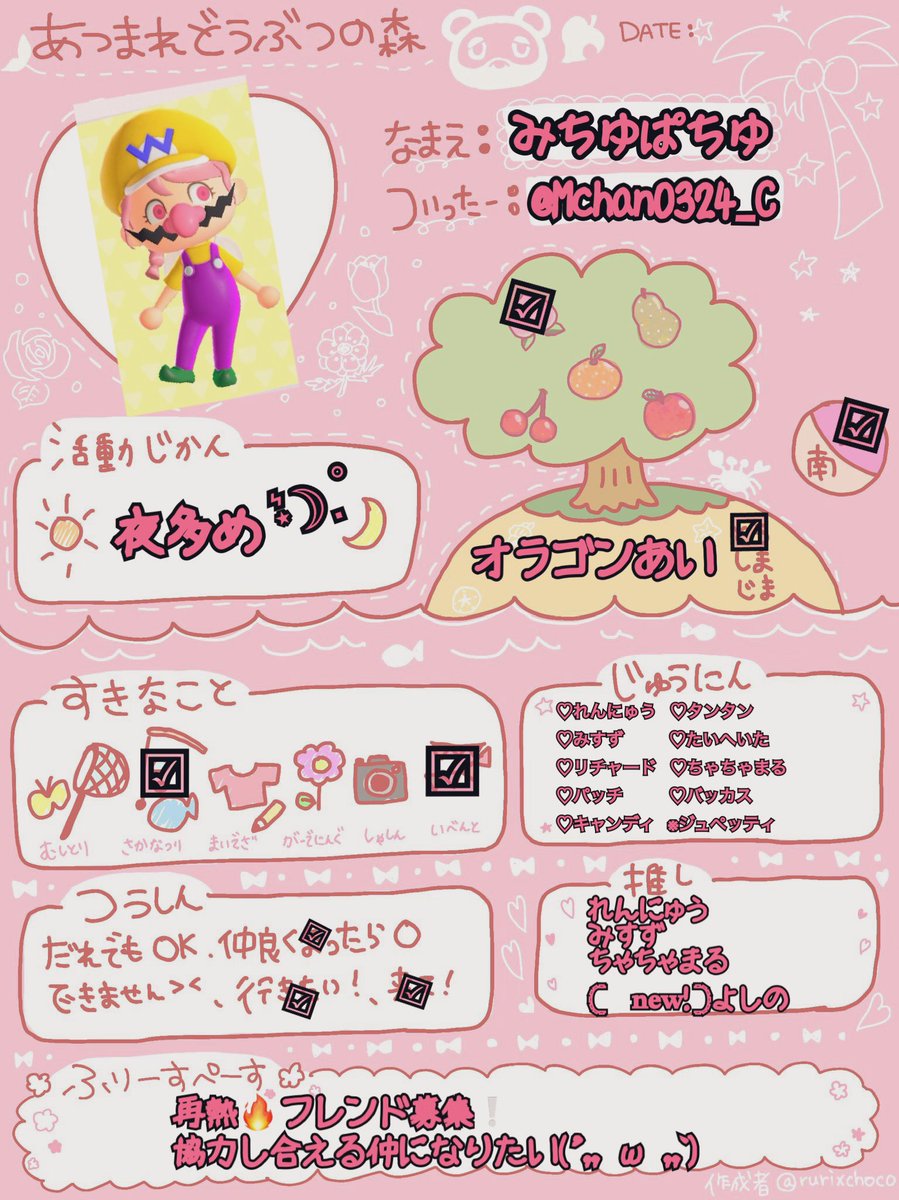 あつまれどうぶつの森
DATE:
なまえ: みちゆぱちゆ
ついったー: @Mchan0324_C
W
活動じかん
夜多め
南
オラゴンあい
しま
じま
すきなこと
むしとり さかなつり まいでざ がーでにんぐ しゃしん いべんと
じゅうにん
♡れんにゅう ♡タンタン
♡みすず ♡たいへいた
♡リチャード ♡ちゃちゃまる
♡パッチ ♡バッカス
♡キャンディ *ジュペッティ
つうしん
だれでもOK、仲良くなったら○
できません><、行きたい!、来て!
推し
れんにゅう
みすず
ちゃちゃまる
( new! )よしの
ふりーすぺーす
再熱🔥フレンド募集❕
協力し合える仲になりたい(´,, ω ,,`)
作成者@rurixchoco